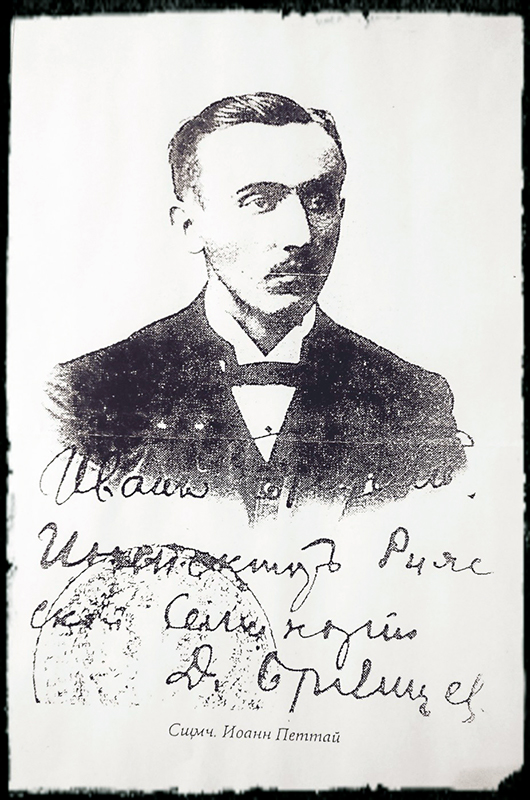 Иванъ
Инспекторъ Рижс
ской Семинаріи
Д.
Сщмч. Иоанн Петтай